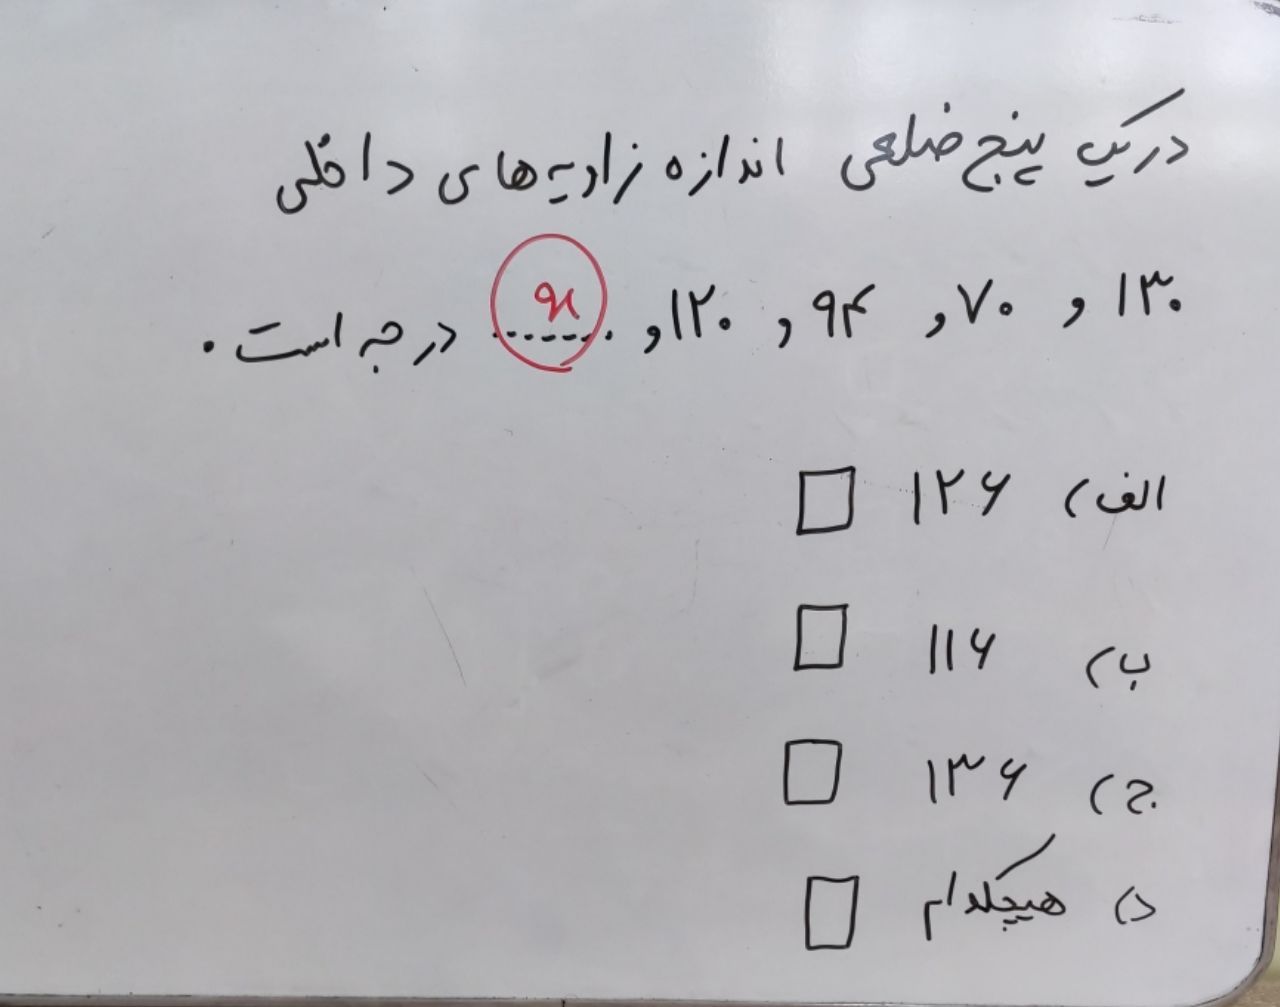 در یک پنج ضلعی اندازه زاویه های داخلی
۱۳۰ و ۷۰ و ۹۴ و ۱۲۰ و ...... درجه است .
الف) ۱۲۶
ب) ۱۱۶
ج) ۱۳۶
د) هیچکدام